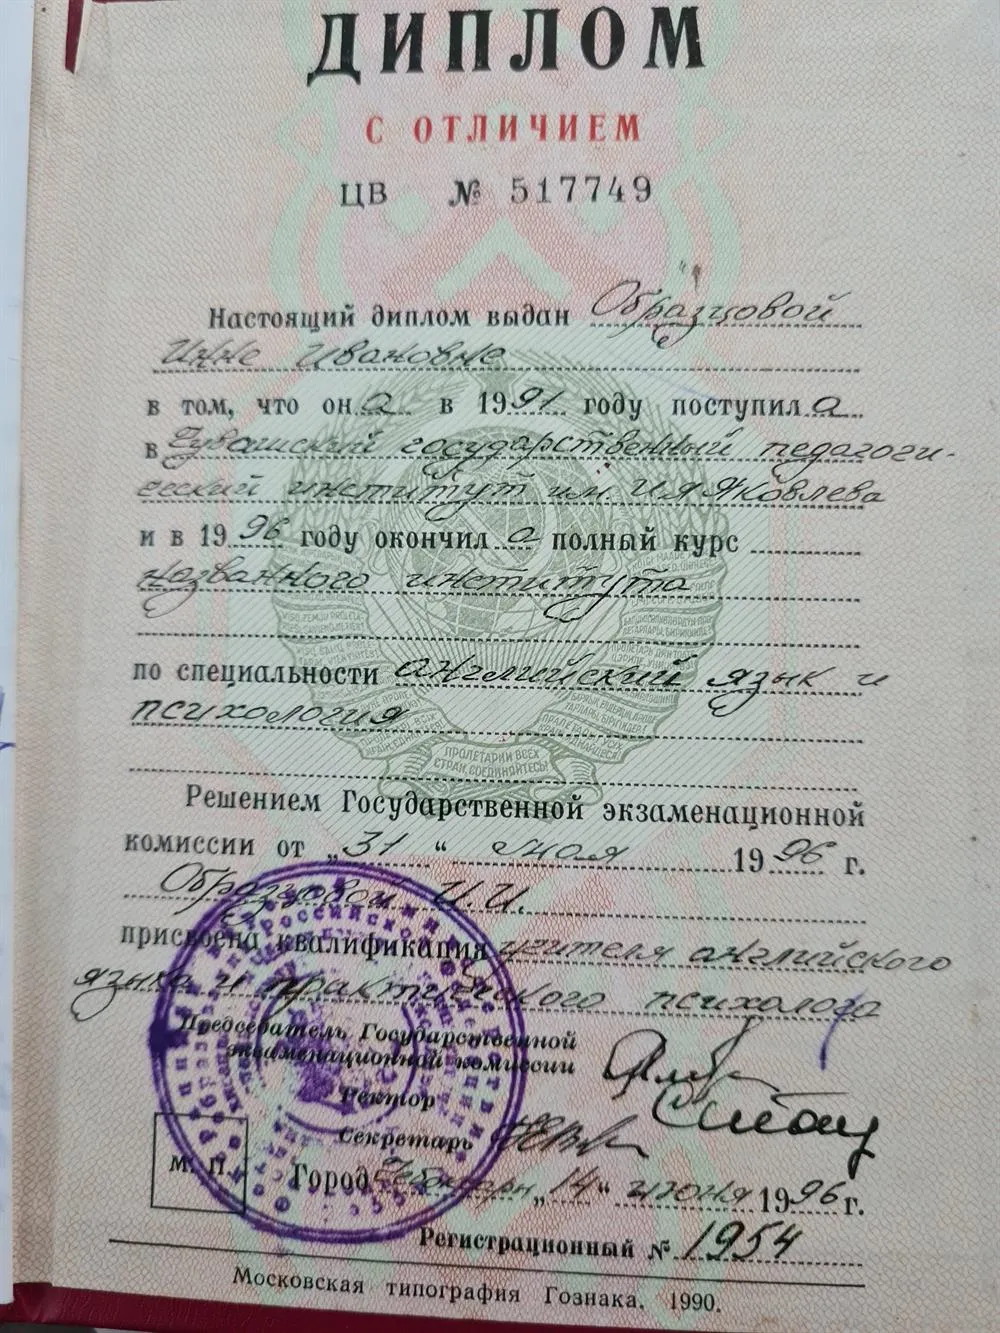 ДИПЛОМ
С ОТЛИЧИЕМ
ЦВ № 517749
Настоящий диплом выдан Образцовой
Инне Ивановне
в том, что он а в 1991 году поступил а
в Чувашский государственный педагоги-
ческий институт им. И Я Яковлева
и в 1996 году окончил а полный курс
названного института
по специальности английский язык и
психология
ПРОЛЕТАРИИ ВСЕХ
СТРАН, СОЕДИНЯЙТЕСЬ!
Решением Государственной экзаменационной
комиссии от „31“ мая 1996 г.
Образцовой И.И.
присвоена квалификация учителя английского
языка и практического психолога
Председатель Государственной
экзаменационной комиссии
Ректор
Секретарь
М. П.
Город Чебоксары „14“ июня 1996 г.
Регистрационный № 1954
Московская типография Гознака. 1990.